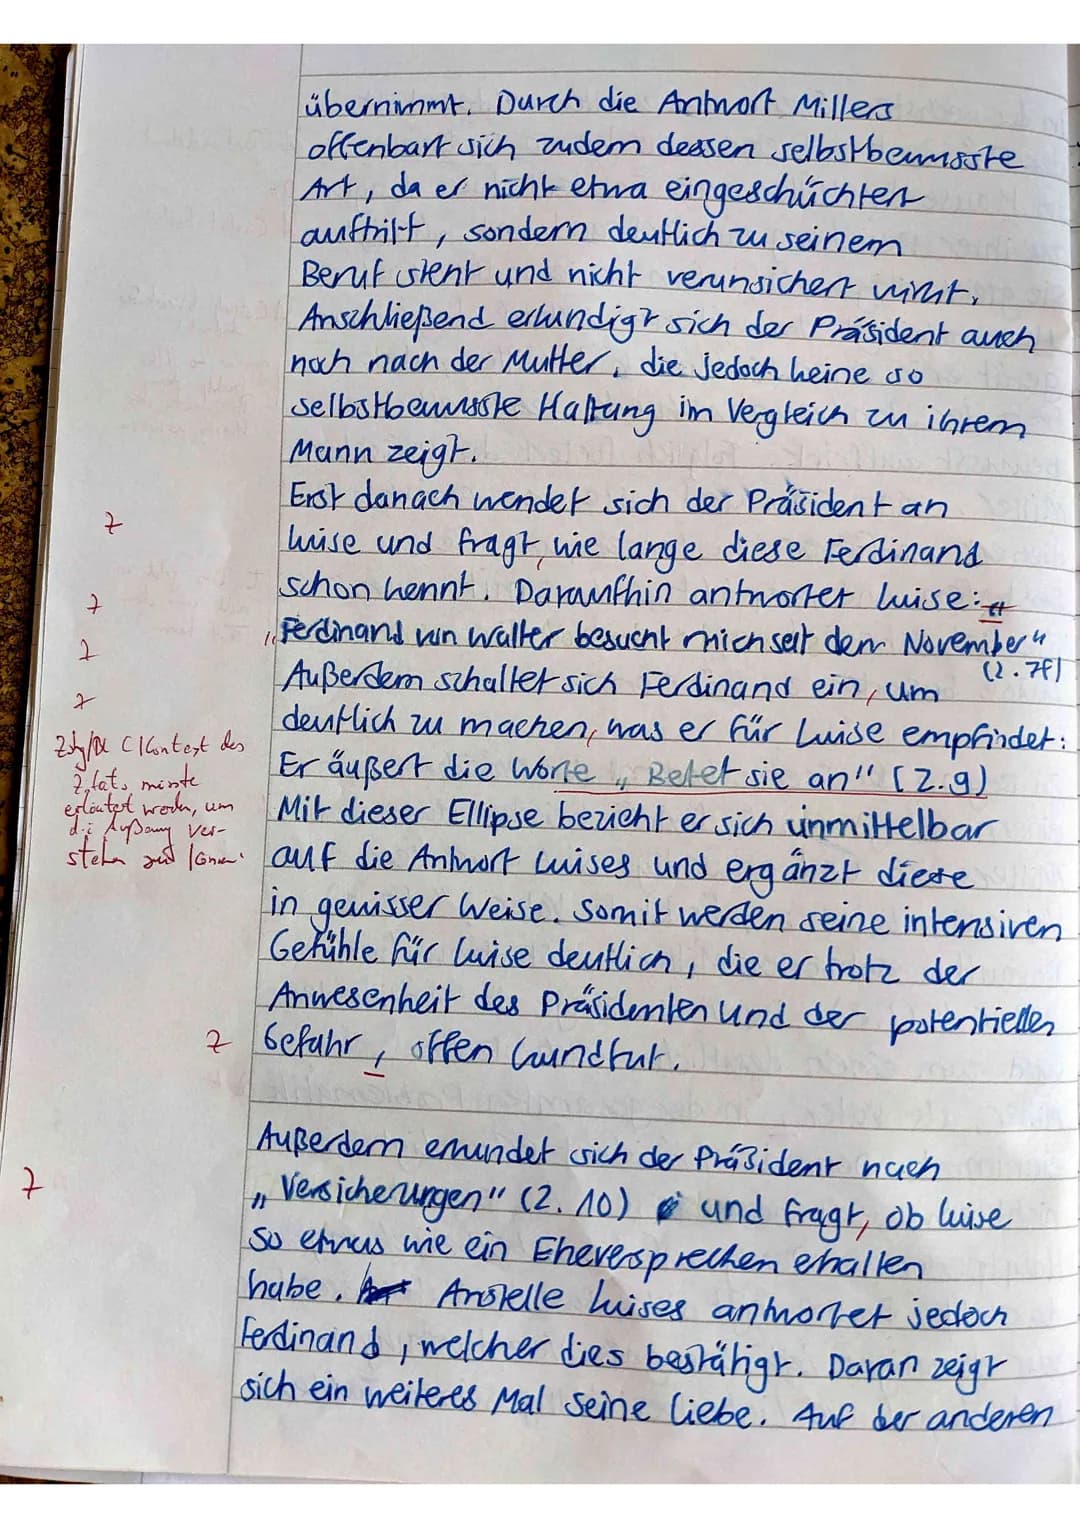 übernimmt. Durch die Antwort Millers
offenbart sich zudem dessen selbstbewusste
Art, da er nicht etwa eingeschüchtert
auftritt, sondern deutlich zu seinem
Beruf steht und nicht verunsichert wirkt.
Anschließend erkundigt sich der Präsident auch
noch nach der Mutter, die jedoch keine so
selbstbewusste Haltung im Vergleich zu ihrem
Mann zeigt.
Erst danach wendet sich der Präsident an
Z
Luise und fragt, wie lange diese Ferdinand
schon kennt. Daraufhin antwortet Luise:
Z
„Ferdinand von Walter besucht mich seit dem November"
Z
(Z. 7f)
Außerdem schaltet sich Ferdinand ein, um
Z
deutlich zu machen, was er für Luise empfindet:
Er äußert die Worte „Betet sie an" (Z. 9)
Kontext des
Zitats müsste
erläutert werden, um
die Äußerung ver-
stehen zu
Mit dieser Ellipse bezieht er sich unmittelbar
auf die Antwort Luises und ergänzt diese
in gewisser Weise. Somit werden seine intensiven
Gefühle für Luise deutlich, die er trotz der
Anwesenheit des Präsidenten und der potentiellen
Z
Gefahr, offen kundtut.
Außerdem erkundet sich der Präsident nach
Z
„Versicherungen" (Z. 10) und fragt, ob Luise
so etwas wie ein Eheversprechen ehalten
habe. Anstelle Luises antwortet jedoch
Ferdinand, welcher dies bestätigt. Daran zeigt
sich ein weiteres Mal seine Liebe. Auf der anderen